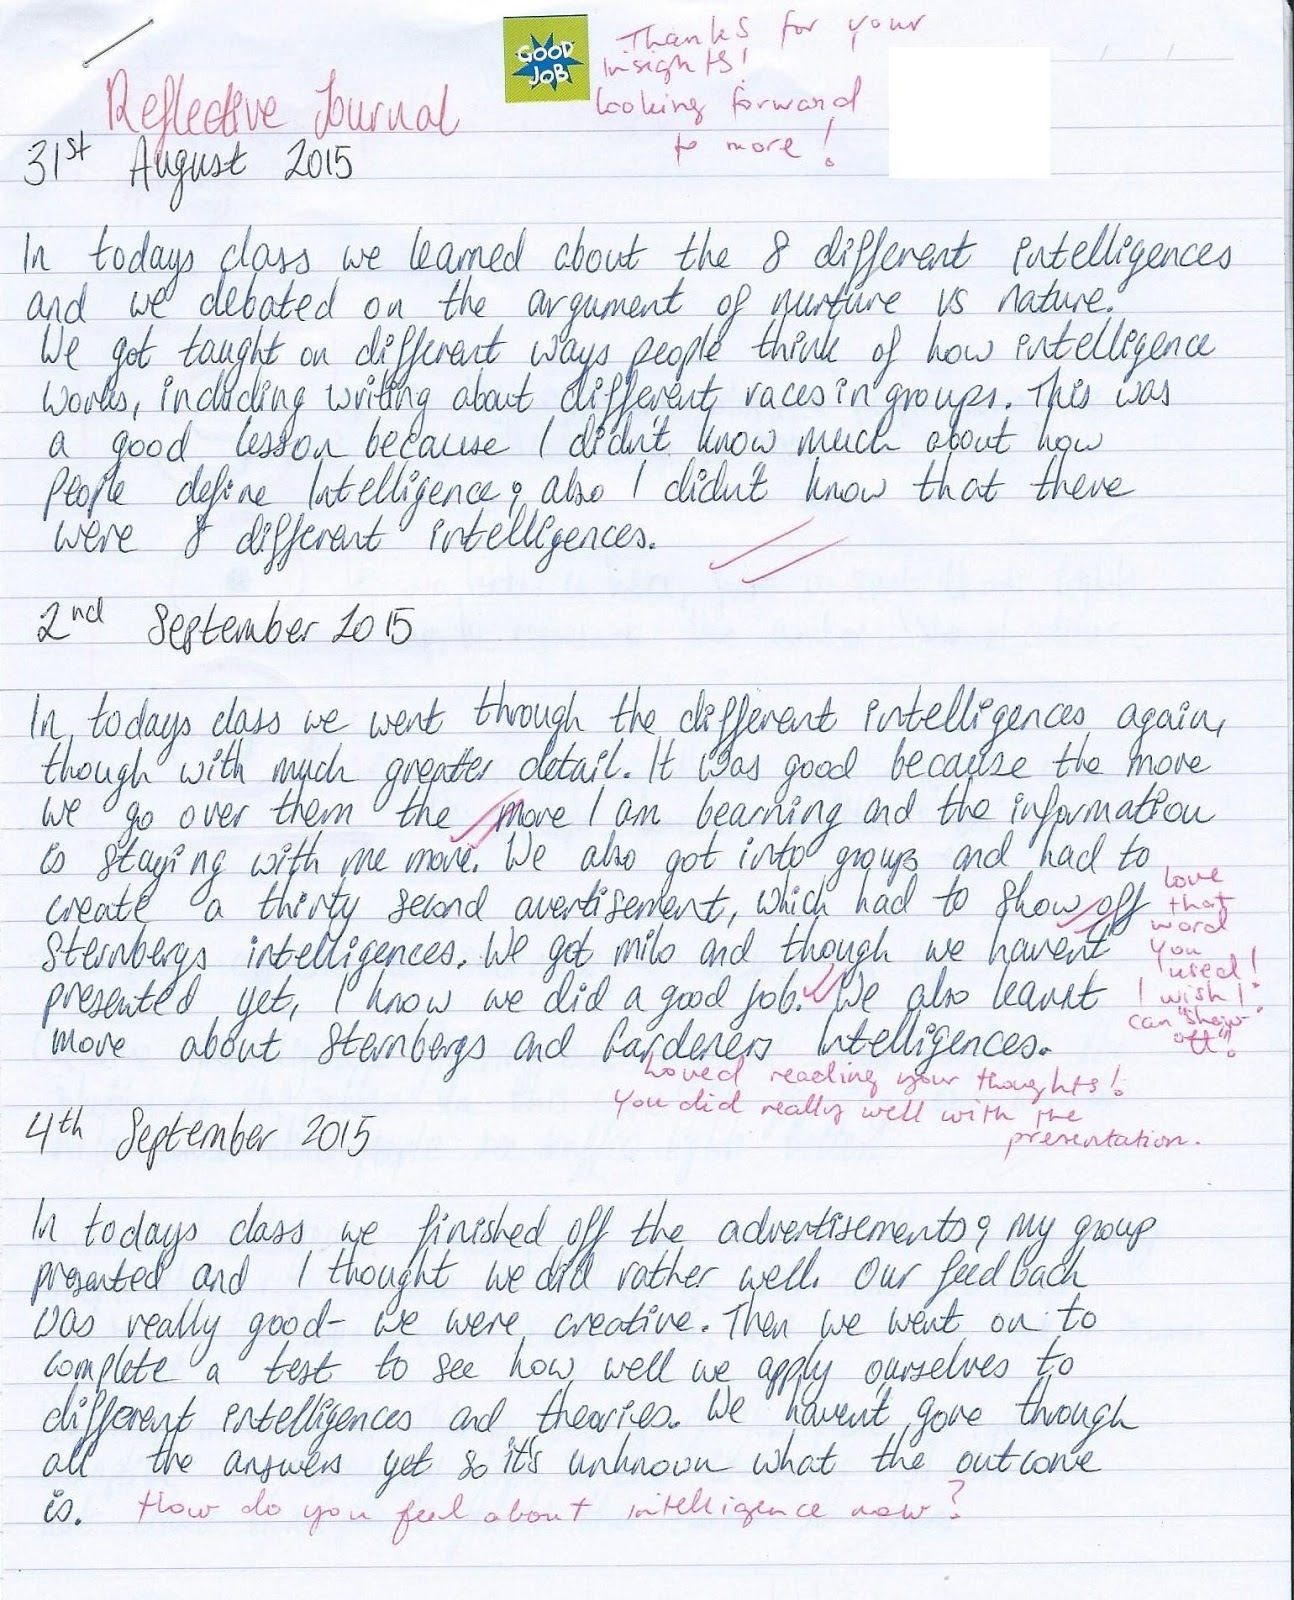 GOOD JOB
Thanks for your
insights!
looking forward
to more!
Reflective Journal
31st August 2015
In todays class we learned about the 8 different intelligences
and we debated on the argument of nurture vs nature.
We got taught on different ways people think of how intelligence
works, including writing about different races in groups. This was
a good lesson because I didn't know much about how
people define Intelligence; also I didn't know that there
were 8 different intelligences.
2nd September 2015
In todays class we went through the different intelligences again,
though with much greater detail. It was good because the more
we go over them the more I am bearning and the information
is staying with me more. We also got into groups and had to
create a thirty second avertisement, which had to show off
Sternbergs intelligences. We got milo and though we havent
presented yet, I know we did a good job. We also learnt
more about Sternbergs and Gardeners Intelligences.
love
that
word
you
used!
I wish I
can "show
off"!
Loved reading your thoughts!
You did really well with the
presentation.
4th September 2015
In todays class we finished off the advertisements; my group
presented and I thought we did rather well. Our feedback
was really good- we were creative. Then we went on to
complete a test to see how well we apply ourselves to
different intelligences and theories. We haven't gone through
all the answers yet so it's unknown what the outcome
is. How do you feel about intelligence now?